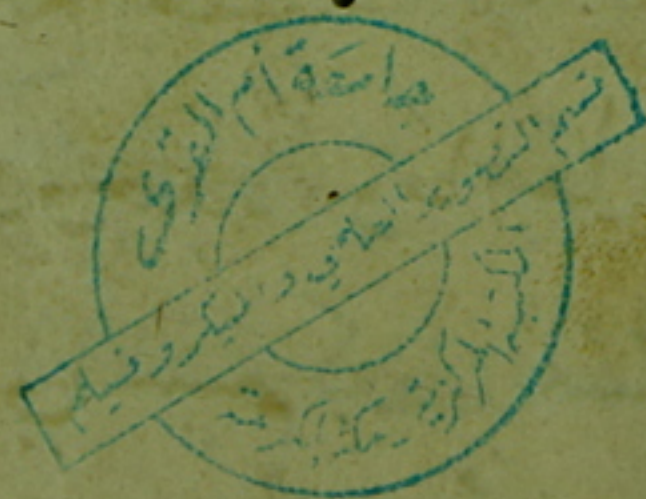 جامعة أم القرى
قسم التصوير الفني والميكروفيلم
المكتبة المركزية بمكة المكرمة